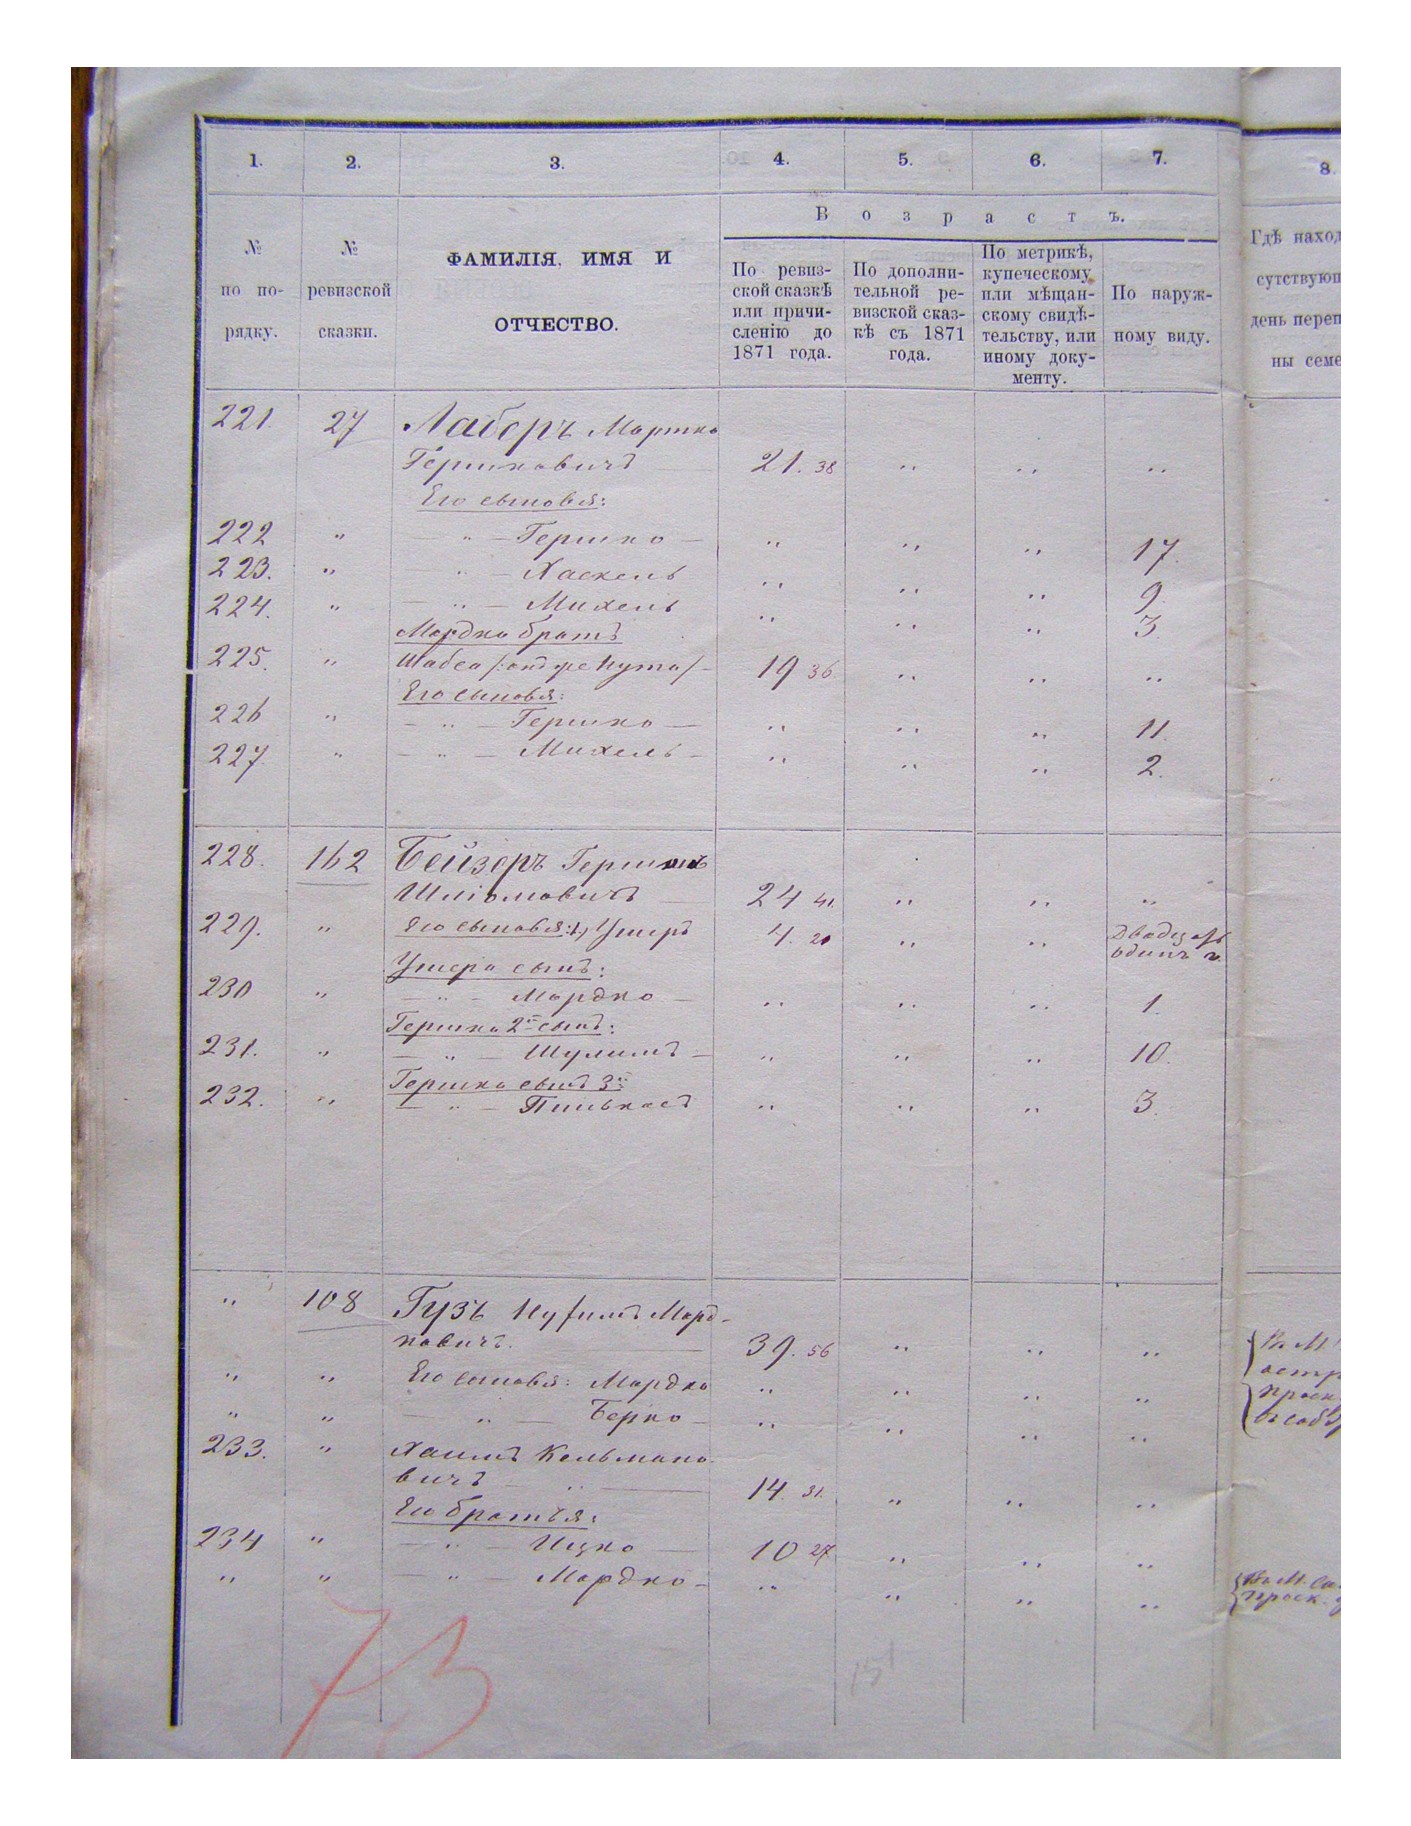 1. 2. 3. 4. 5. 6. 7. 8.
Возрастъ.
№ по по-рядку.
№ ревизской сказки.
ФАМИЛІЯ, ИМЯ И
ОТЧЕСТВО.
По ревиз-
ской сказкѣ
или причи-
сленію до
1871 года.
По дополни-
тельной ре-
визской сказ-
кѣ съ 1871
года.
По метрикѣ,
купеческому
или мѣщан-
скому свидѣ-
тельству, или
иному доку-
менту.
По наруж-
ному виду.
Гдѣ наход
сутствующ
день переп
ны семе
221. 27 Лаберъ
Гершковичъ 21. 38 " " "
Его сыновья:
222 " — " — Гершко — " " " 17.
223. " — " — Хаскель " " " 9.
224. " — " — Михель " " " 3
Мордко братъ
225. " Шабса 19 36 " " "
Его сыновья:
226 " — " — Гершко — " " " 11.
227. " — " — Михель — " " " 2.
228. 162 Бейзеръ
Шліомовичъ 24 41. " " "
229. " Его сыновья: 1, Ушеръ 4. 21 " " Двадцать
одинъ г.
Ушера сынъ:
230 " — " — Мордко — " " " 1.
Гершка 2й сынъ:
231. " — " — Шулимъ — " " " 10.
Гершка сынъ 3й
232. " — " — Пинькасъ " " " 3.
" 108 Гузъ Морд-
ковичъ. 39. 56 " " "
" " Его сыновья: Мордко " " " "
" " — " — Берко — " " " "
233. " Хаимъ Кельмано
вичъ — " — 14. 31. " " "
Его братья:
234 " — " — Ицко — 10 27 " " "
" " — " — Мордко — " " " "
73
151